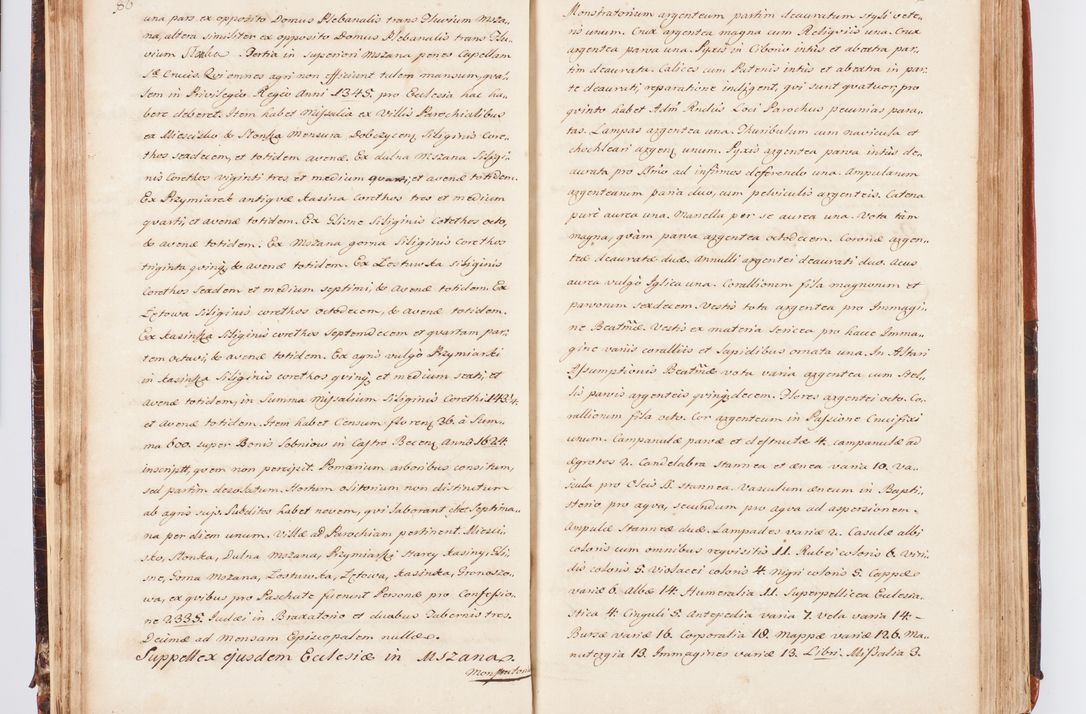 86
una pars ex opposito Domus Plebanalis trans Fluvium Msza„
na, altera similiter ex opposito Domus Plebanalis trans Flu„
vium Słonka. Tertia in superiori Mszana penes Capellam
Sae Crucis Qviennes agri non efficient talem mansum, qva„
lem in Privilegio Regio Anni 1345. pro Ecclesia hac ha„
bere deberet. Item habet Missalia ex Villis Parochialibus
ex Mieścisko & Słonka Mensura Dobczycen, Siliginis Core„
thos sexdecem, et totidem avenæ. Ex dulna Mszana Siligi„
nis Corethos viginti tres et medium qvarti, et avenæ totidem.
Ex Przymiarek antiqvæ Kasina Corethos tres et medium
qvarti, et avenæ totidem. Ex Glisne Siliginis Corethos octo,
& avenæ totidem. Ex Mszana gorna Siliginis corethos
triginta qvinq & avenæ totidem. Ex Lostuwka siliginis
Corethos Sexdem et medium septimi, & avenæ totidem. Ex
Lętowa siliginis corethos octodecem, & avenæ totidem.
Ex Kasinka Siliginis corethos Septemdecem et quartam par„
tem octavi, & avenæ totidem. Ex agris vulgo Przymiarki
in Kasinka Siliginis corethos qvinq et medium sexti, et
avenæ totidem, in Summa Missalium Siliginis Corethi 143¼.
et avenæ totidem. Item habet Censum floren 36. à Sum„
ma 600. super Bonis Sobniow in Castro Beccen Anno 1624.
inscript, qvem non percipit. Pomarium arboribus consitum,
sed partim desolatum. Hortum olitorium non distinctum
ab agris sujs. Subditos habet novem, qvi laborant che Septima„
na per diem unum. Villæ ad Parochiam pertinent. Mieści„
sko, Słonka, Dulna Mszana, Przymiarki Starey Kasiny, Gli„
sne, Gorna Mszana, Lostuwka, Lętowa, Kasinka, Gronoszo„
wa, ex qvibus pro Paschate fuerunt Personæ pro Confessio„
ne 2335. Judei in Braxatorio et duabus Tabernis tres.
Decimæ ad Mensam Episcopalem nullæ.
Suppellex ejusdem Ecclesiæ in Mszana.
Monstratorium
Monstratorium argenteum partim deauratum styli vete„
ris unum. Crux argentea magna cum Religviis una. Crux
argentea parva una. Pyxis in Ciborio intus et abextra par„
tim deaurata. Calices cum Patenis intus et abextra in par„
te deaurati, reparatione indigent, qvi sunt qvatuor, pro
qvinto habet Adm Rndus Loci Parochus pecunias para„
tas. Lampas argentea una. Thuribulum cum navicula et
chochleari argen unum. Pyxis argentea parva intus de„
aurata pro Smo ad infirmos deferendo una. Ampularum
argentearum paria duo, cum pelviculis argenteis. Catena
purè aurea una. Manella per se aurea una. Vota tàm
magna, qvàm parva argentea octodecem. Coronæ argen„
teæ deauratæ duæ. Annulli argentei deaurati duo. Acus
aurea vulgò Iglica una. Corallorum fila magnorum et
parvorum sexdecem. Vestis tota argentea pro Immagi„
ne Beatmæ. Vestis ex materia Sericea pro hacce Imma„
gine variis coralliis et Lapidibus ornata una. In Altari
Assumptionis Beatmæ vota varia argentea cum Stel„
lis parvis argenteis qvinqdecem. Flores argentei octo. Co„
rallorum fila octo. Cor argenteum in Passione Crucifixi
unum. Campanulæ parvæ et destrutæ 4. campanulæ ad
ægrotos 2. Candelabra stannea et ænea varia 10. Va„
scula pro Oleis S. stannea. Vasculum æneum in Bapti„
sterio pro aqva, secundum pro aqva ad aspersionem.
Ampulæ stanneæ duæ. Lampades variæ 2. Casulæ albi
coloris cum omnibus reqvisitis 11. Rubei coloris 6. viri„
dis coloris 5. violacei coloris 4. nigri coloris 5. Cappæ
variæ 6. Albæ 14. Humeralia 11. Superpellicea Ecclesia„
stica 4. Cinguli 5. Antepedia varia 7. Vela varia 14.
Bursæ variæ 16. Corporalia 18. Mappæ variæ 126. Ma„
nutergia 13. Immagines variæ 13. Libri. Missalia 3.